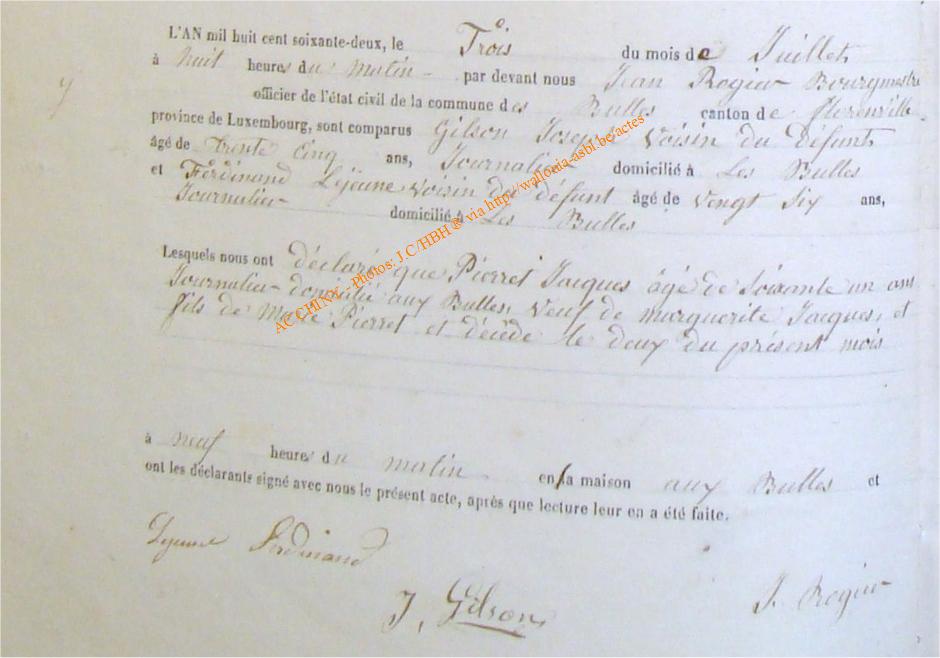 L'AN mil huit cent soixante-deux, le Trois du mois de Juillet
à huit heures du Matin par devant nous Jean Rogier Bourgmestre
officier de l'état civil de la commune des Bulles canton de florenville
province de Luxembourg, sont comparus Gilson Joseph Voisin du Défunt
âgé de trente Cinq ans, Journalier domicilié à Les Bulles
et Ferdinand Lejeune Voisin du défunt âgé de Vengt Six ans,
Journalier domicilié à Les Bulles
Lesquels nous ont déclaré que Pierret Jacques âgé de Soixante un ans
Journalier domicilié aux Bulles, Veuf de marguerite Jacques, et
fils de Marie Pierret et décédé le deux du présent mois
à neuf heures du matin en la maison aux Bulles et
ont les déclarants signé avec nous le présent acte, après que lecture leur en a été faite.
Lejeune Ferdinand
J. Gilson
J. Rogier
ACCHINX - Photos: J.C/HBH ® via http://wallonia-asbl.be/actes